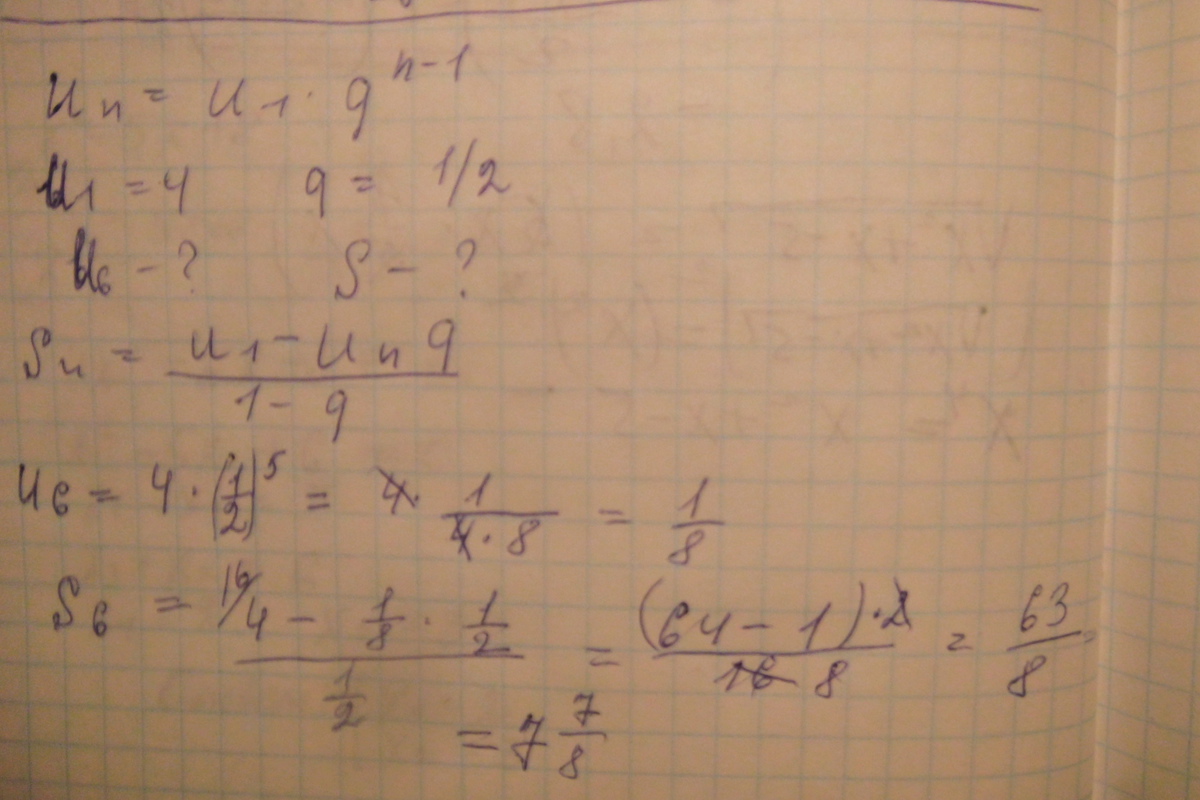 Un = U1 · q^(n-1)
U1 = 4 q = 1/2
U6 - ? S - ?
Sn = (U1 - Un q)/(1 - q)
U6 = 4 · (1/2)^5 = 4 · 1/(4 · 8) = 1/8
S6 = (16/4 - 1/8 · 1/2)/(1/2) = ((64 - 1) · 2)/(16 8) = 63/8 =
= 7 7/8